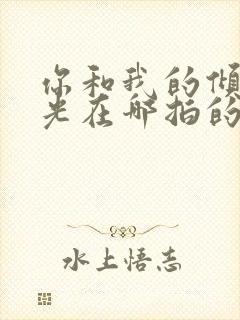 你和我的倾
光在哪拍的
水上悟志